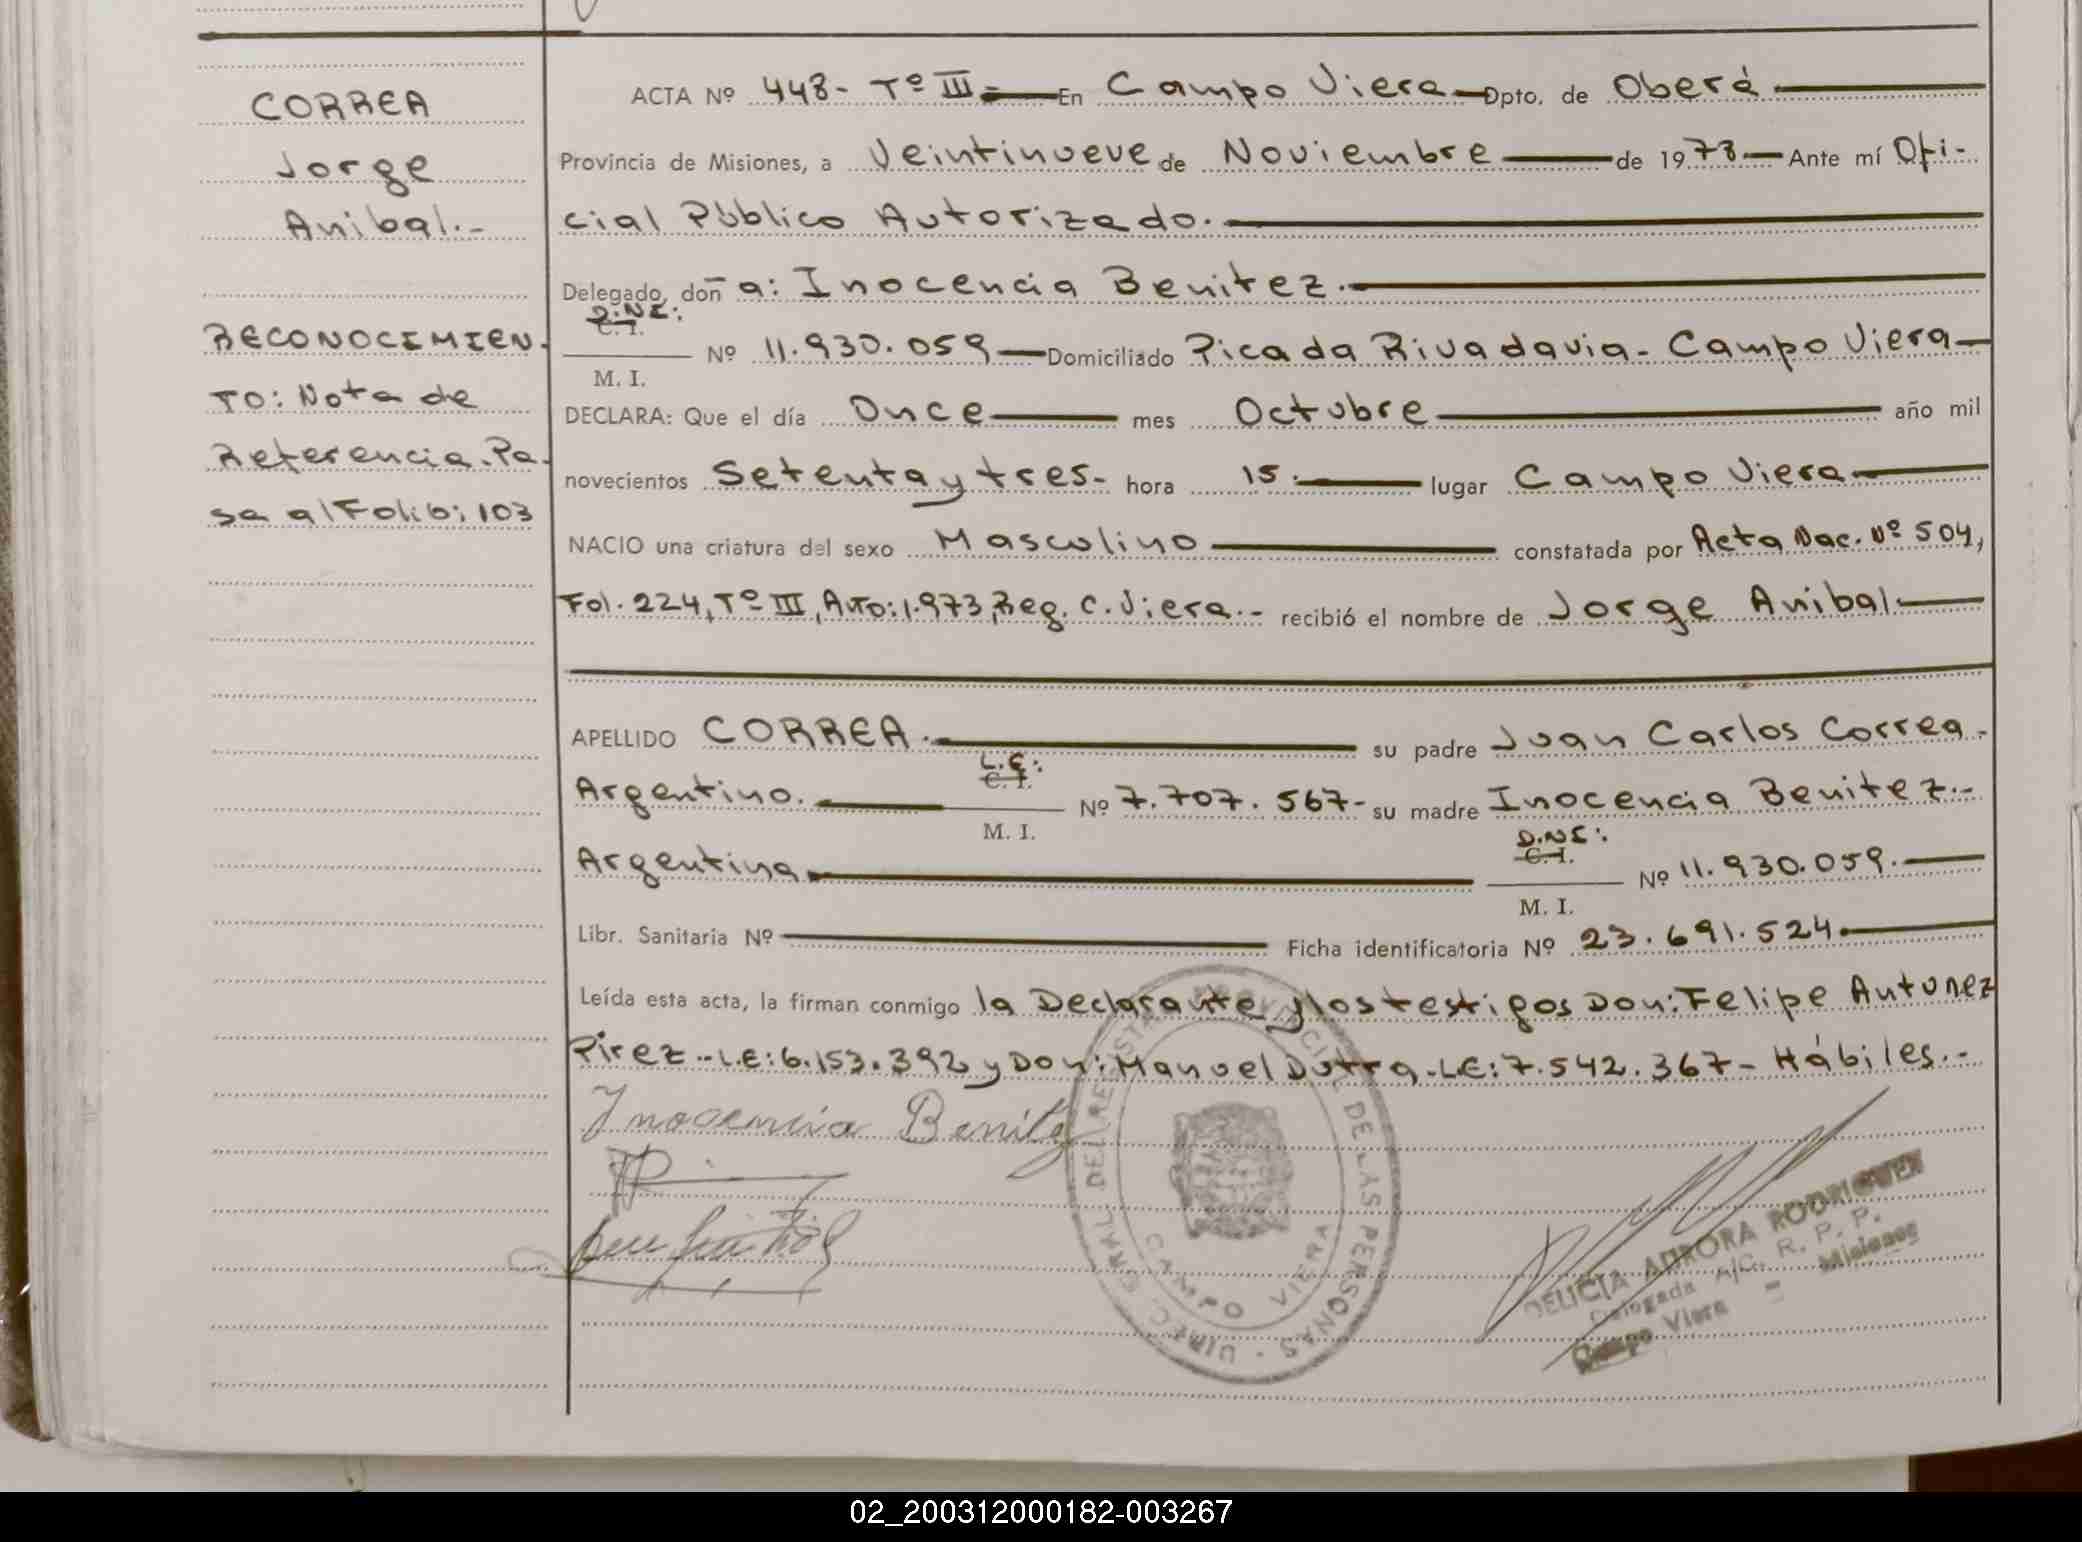 CORREA
Jorge
Anibal.-
RECONOCIMIEN-
TO: Nota de
Referencia. Pa-
sa al Folio: 103
ACTA Nº 448- Tº III- En Campo Viera Dpto. de Oberá
Provincia de Misiones, a Veintinueve de Noviembre de 1978 Ante mí Ofi-
cial Público Autorizado.
Delegado, don a: Inocencia Benitez.
D.N.I:
C. I.
M. I.
Nº 11.930.059 Domiciliado Picada Rivadavia- Campo Viera
DECLARA: Que el día Once mes Octubre año mil
novecientos Setenta y tres- hora 15. lugar Campo Viera
NACIO una criatura del sexo Masculino constatada por Acta Nac. Nº 504,
Fol. 224, Tº III, Año: 1.973, Reg. C. Viera.- recibió el nombre de Jorge Anibal
APELLIDO CORREA. su padre Juan Carlos Correa-
L.E:
C. I.
M. I.
Argentino. Nº 7.707.567- su madre Inocencia Benitez.-
D.N.I:
C. I.
M. I.
Argentina Nº 11.930.059.
Libr. Sanitaria Nº Ficha identificatoria Nº 23.691.524
Leída esta acta, la firman conmigo la Declarante y los testigos Don: Felipe Antunez
Pirez.-L.E: 6.153.392 y Don: Manuel Dutra.-L.E: 7.542.367- Hábiles.-
Inocencia Benitez
DIREC. GRAL. DEL REGISTRO PROVINCIAL DE LAS PERSONAS
CAMPO VIERA
DELICIA AURORA RODRIGUEZ
Delegada A/C. R. P. P.
Campo Viera - Misiones
02_200312000182-003267